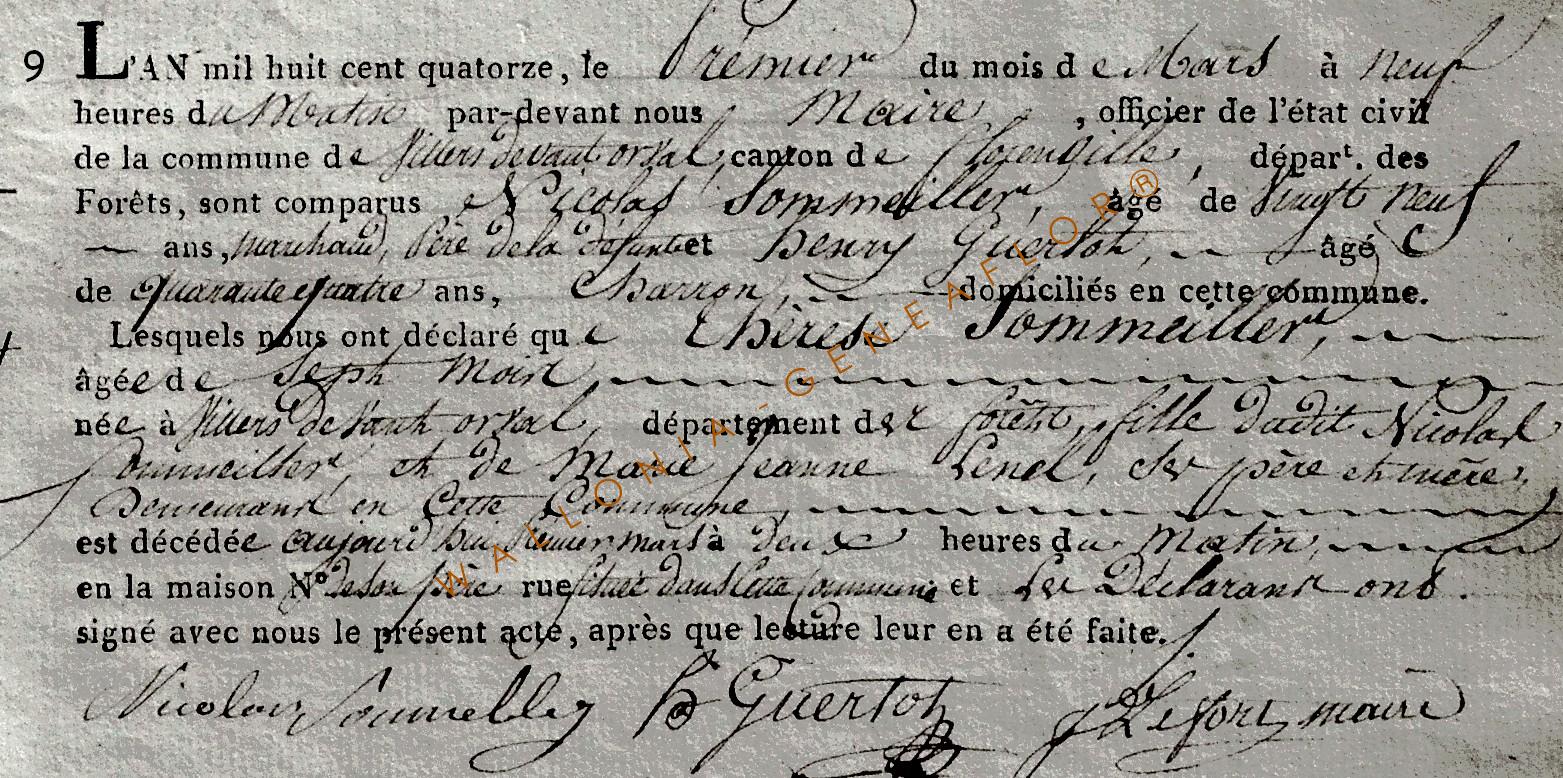 9 L'AN mil huit cent quatorze, le Premier du mois de Mars à neuf
heures du Matin par-devant nous Maire, officier de l'état civil
de la commune de Villers devant orval, canton de florenville, départ. des
Forêts, sont comparus Nicolas Sommeiller, âgé de Vingt neuf
ans, marchand, Père de la défunte et henry Guerlot, âgé
de quarante quatre ans, Charron, domiciliés en cette commune.
Lesquels nous ont déclaré que thérese Sommeiller,
âgée de Sept Mois,
née à Villers devant orval, département des forêts, fille dudit Nicolas
Sommeiller, et de Marie Jeanne, ses père et mère,
Demeurant en Cette Commune,
est décédée aujourd'hui premier mars à deux heures du Matin,
en la maison N° de son père rue située dans Cette Commune et les Déclarans ont
signé avec nous le présent acte, après que lecture leur en a été faite.
Nicolas Guerlot Lefort maire
WALLONIA-GENEAFLOR®